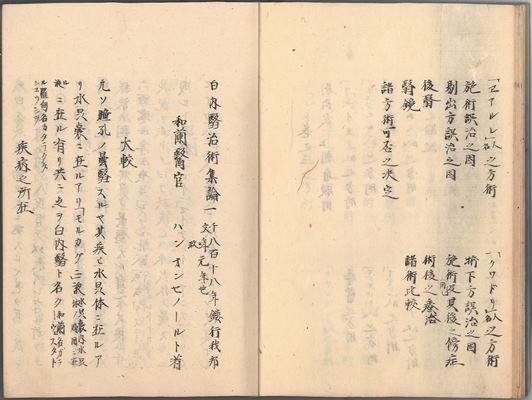 「ヱアルレ」人名之方術
施術誤治之因
剔出方誤治之因
後瞖
瞖鏡
諸方術可否之決定
「クワドリ」人名之方術
挫下方誤治之因
施術及其後之傷症
術後之療治
諸術比較
白内瞖治術集論一 千八百十八年鏤行我邦
文政元年也
和蘭醫官
ハン オンセノールト著
大較
凡ソ瞳孔ノ曇瞖スルヤ其疾ヒ水晶体ニ在ルア
リ水晶囊ニ在ルアリ「モルガグニ」液
液ニ在ル有リ共ニ之ヲ白内瞖ト名ク
疾病之所在